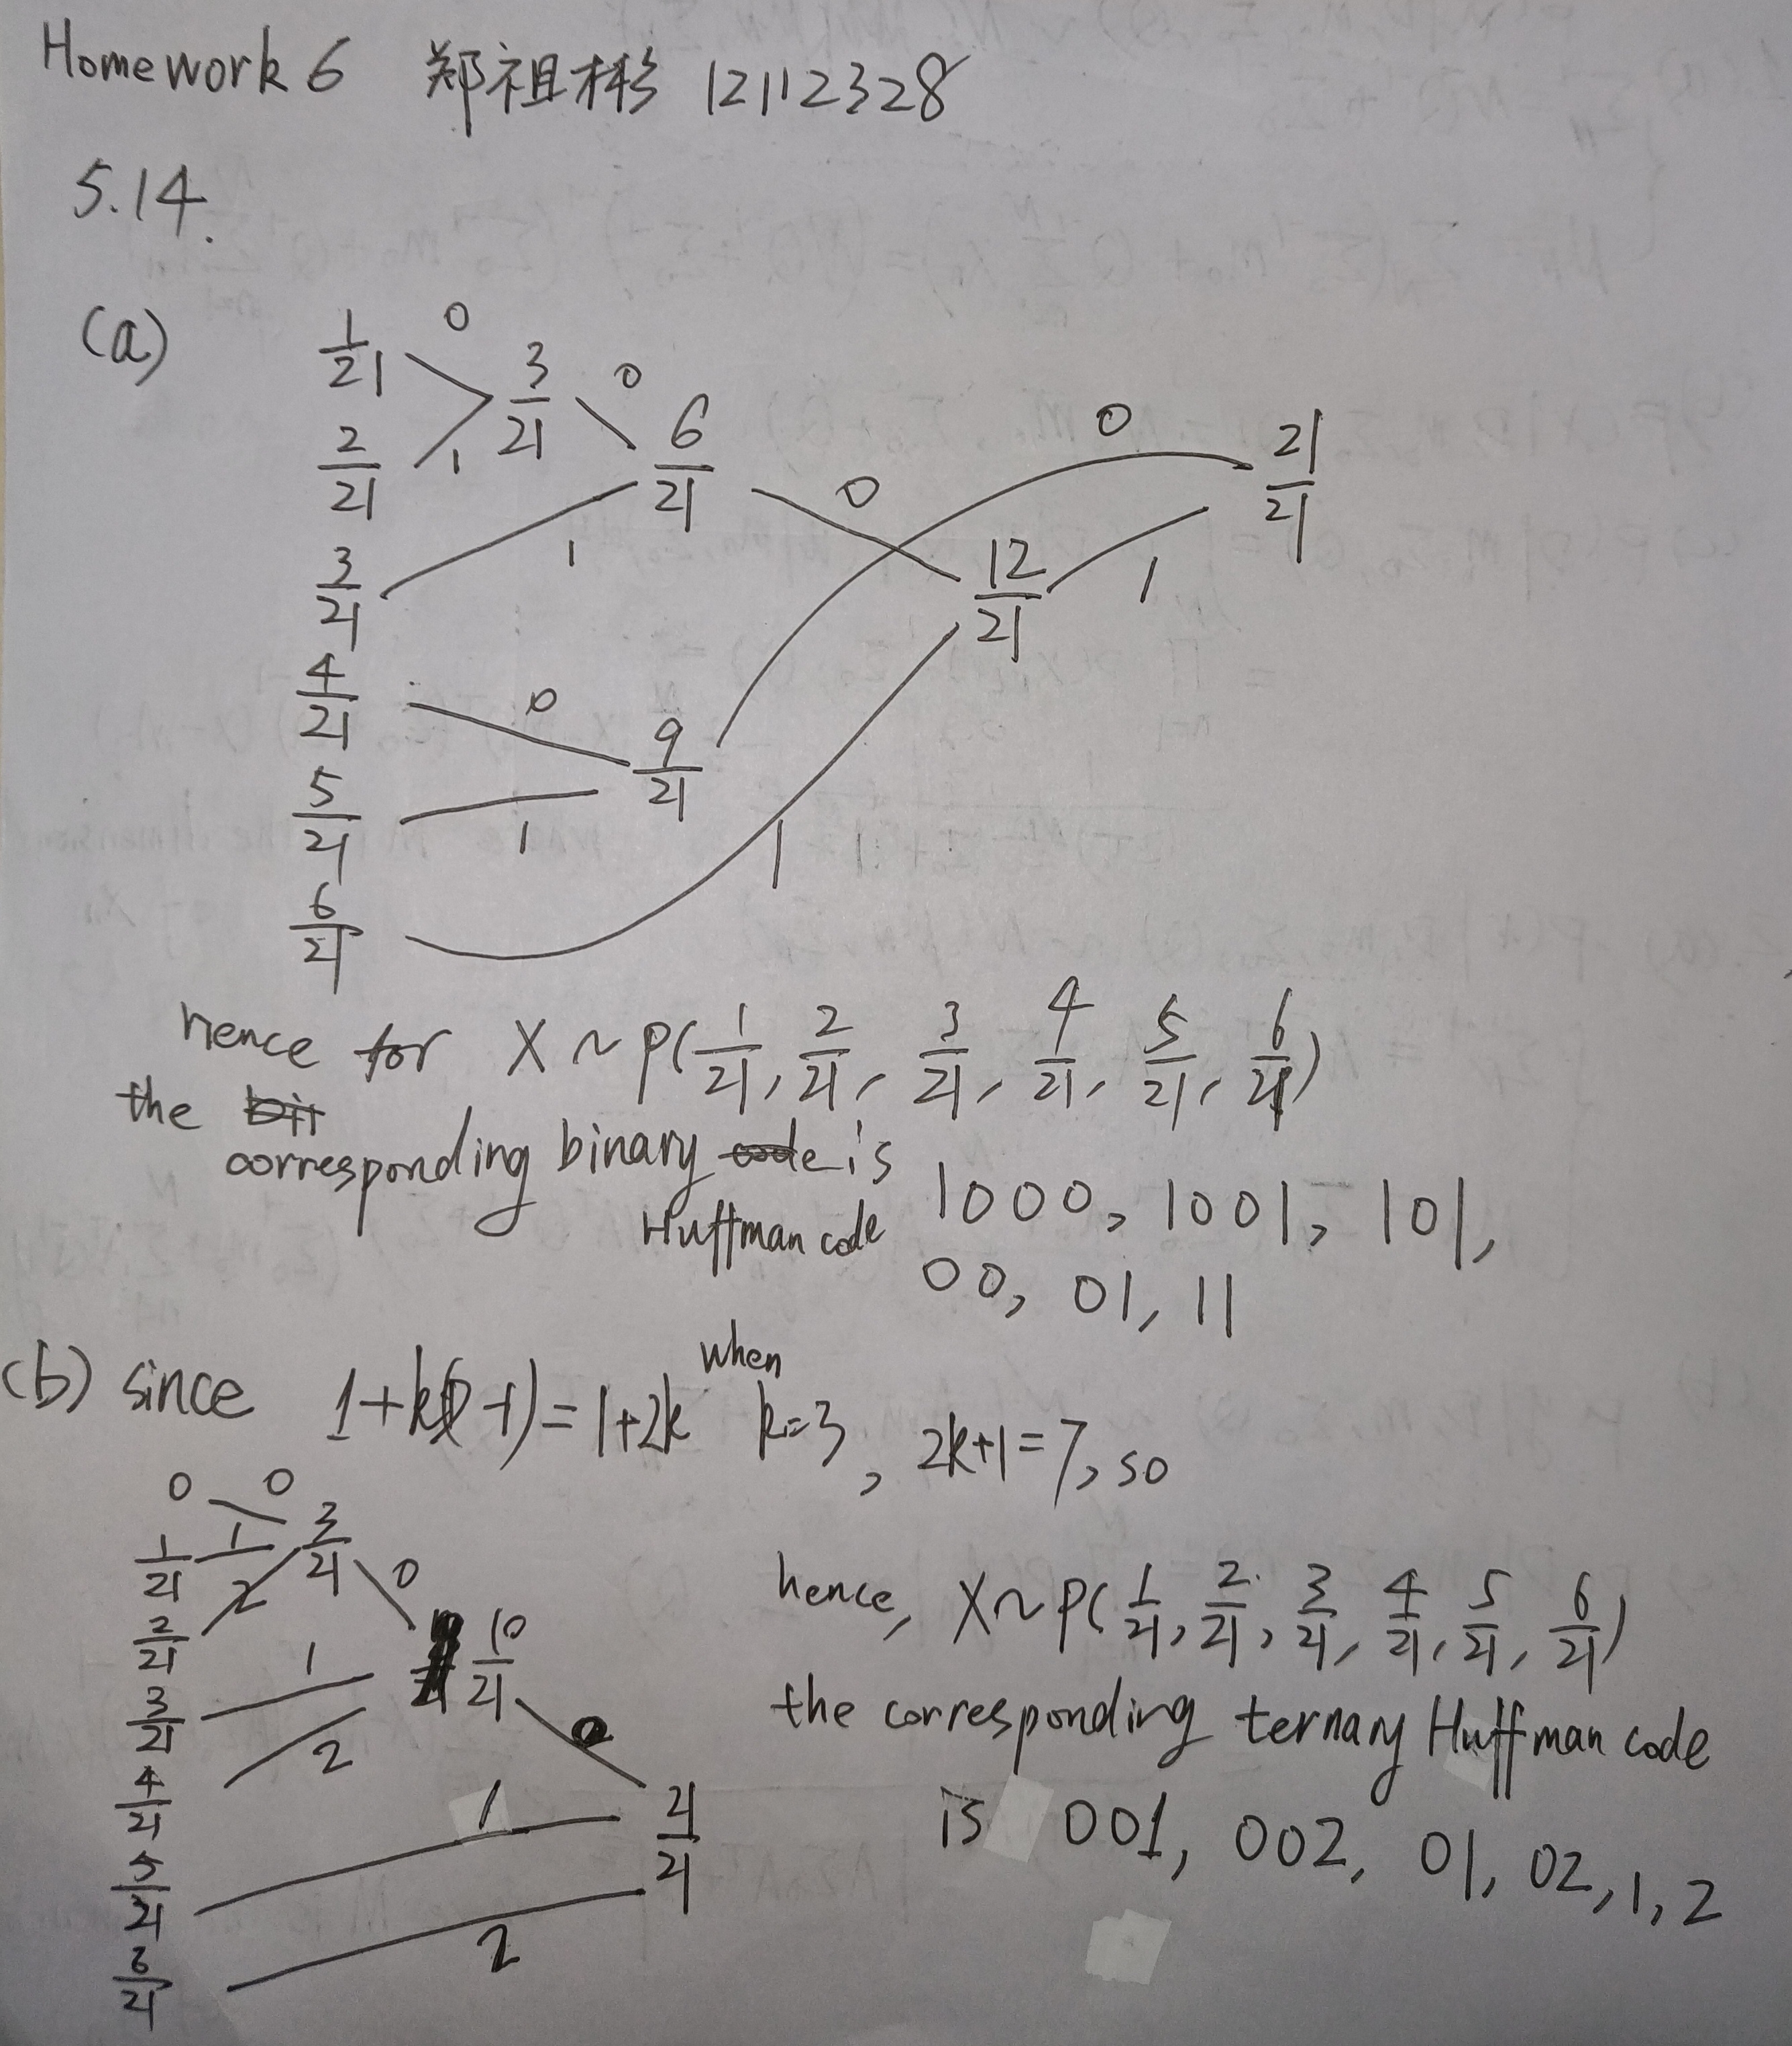 Homework 6 郑祖彬 12112328
5.14.
(a)
1/21 0
3/21 0
2/21 1
6/21 0
0 21/21
3/21 1
12/21 1
4/21 0
9/21
5/21 1
1
6/21
hence for X ~ P(1/21, 2/21, 3/21, 4/21, 5/21, 6/21)
the
corresponding binary is
Huffman code 1000, 1001, 101,
00, 01, 11
(b) since 1+k(D-1)=1+2k when k=3, 2k+1=7, so
0 0
1/21 1 3/21 0
2/21 2
10/21 0
3/21 1
4/21 2
5/21 1 21/21
6/21 2
hence, X~P(1/21, 2/21, 3/21, 4/21, 5/21, 6/21)
the corresponding ternary Huffman code
is 001, 002, 01, 02, 1, 2